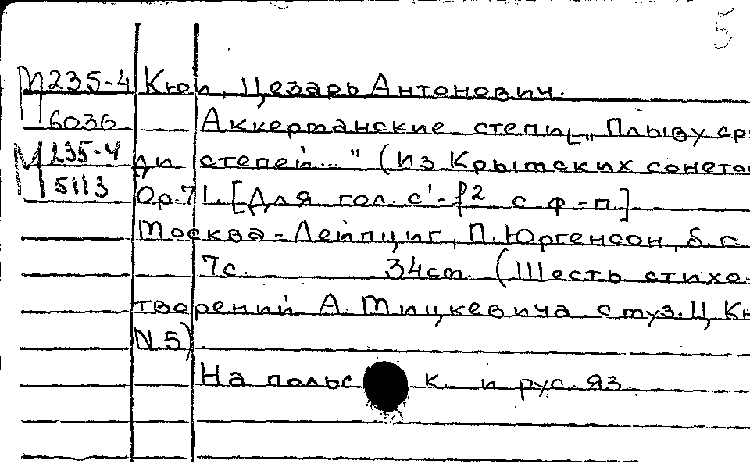 5
М 235-4 Кюи, Цезарь Антонович.
6036 Аккерманские степи[„Плыву сре
М 235-4 ди степей..." (Из Крымских сонето
5113 Op.71. [Для гол. c'-f² с ф-п.]
Москва-Лейпциг, П. Юргенсон, б. г.
7с. 34cm. (Шесть стихо-
творений А. Мицкевича с муз. Ц. Кю
N.5)
На польс к. и рус. яз.